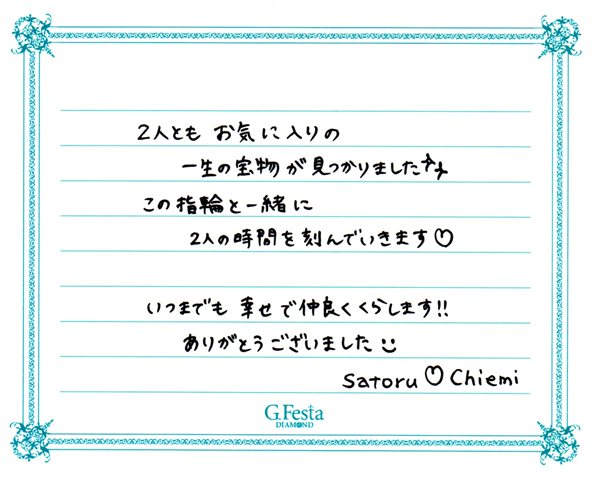 2人とも お気に入りの
一生の宝物が見つかりました♪
この指輪と一緒に
2人の時間を刻んでいきます♡
いつまでも 幸せで仲良くくらします!!
ありがとうございました
Satoru ♡ Chiemi
G.Festa
DIAMOND